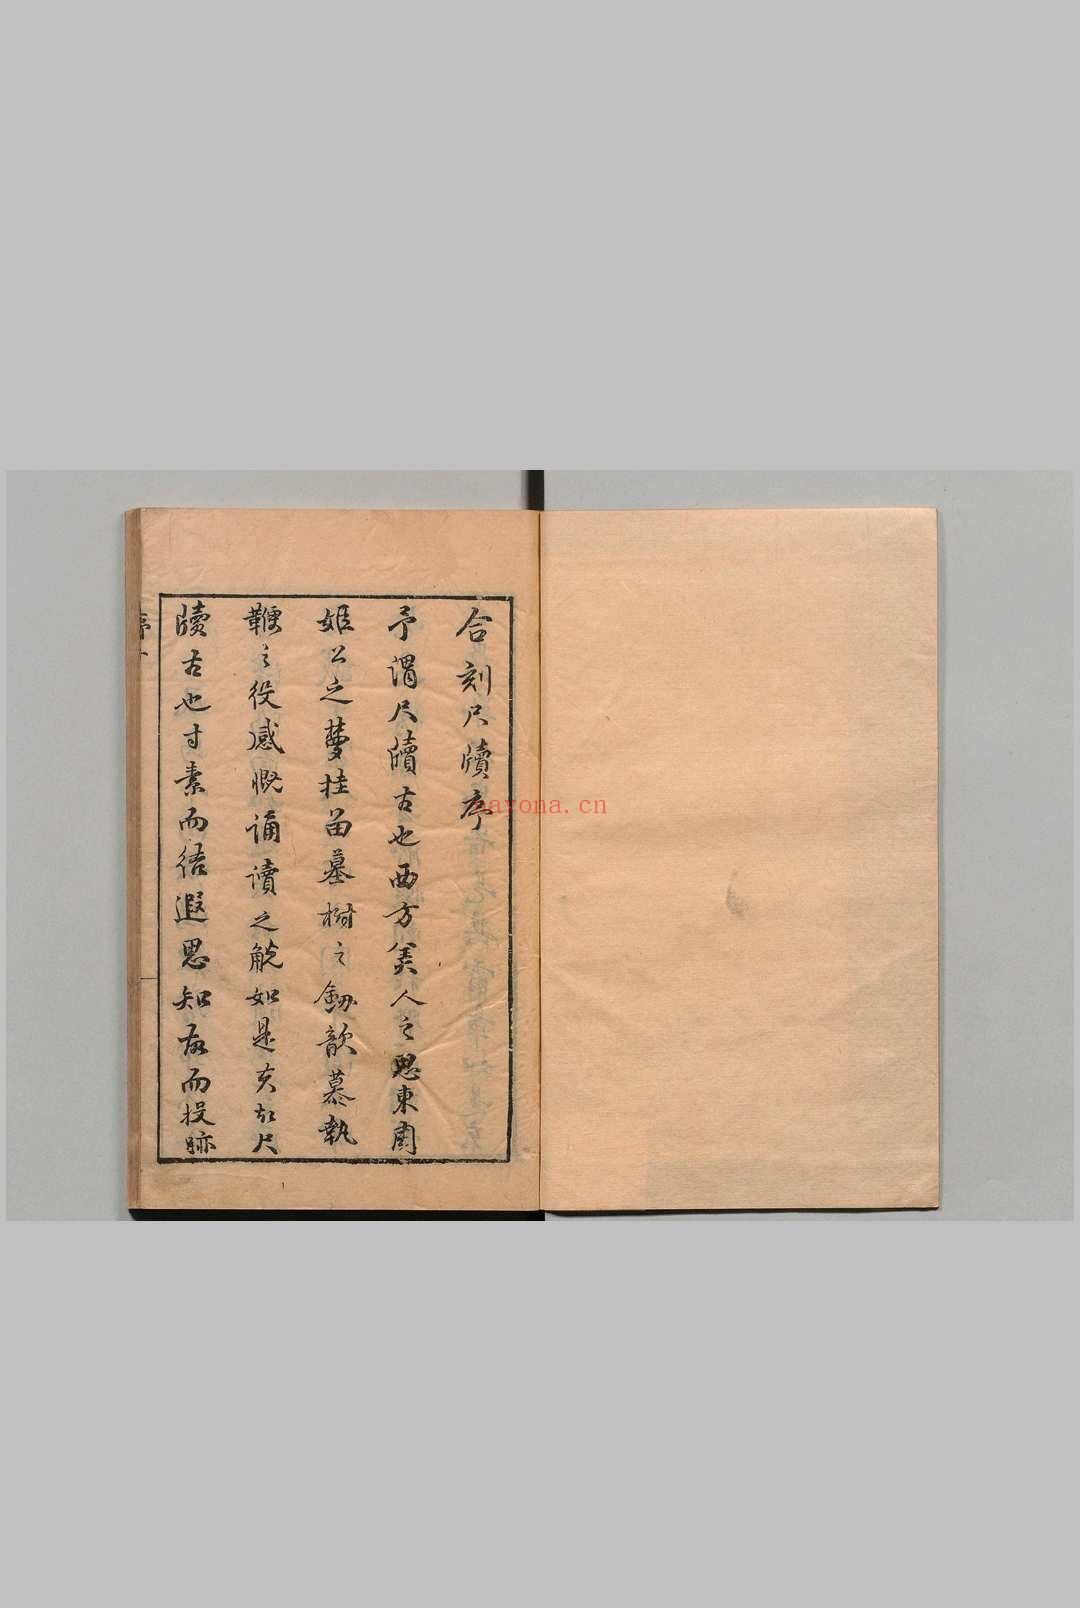 合刻尺牘序
予謂尺牘古也西方美人之思東周
姬公之夢挂留墓樹之劔歆慕執
鞭之役感慨誦讀之觥如是夫故尺
牘古也寸素而結遐思知故而投跡
序
nayona.cn